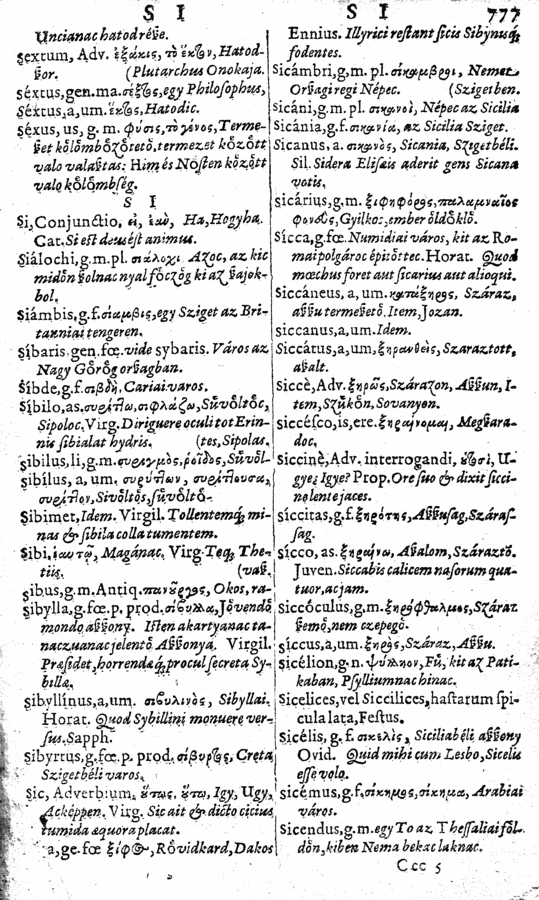 S I
S I
777
Uncianac hatod réʃe.
Sextum, Adv. ἑξάκις, τὸ ἕκτον, Hatod-
ʃor. (Plutarchus Onokaja.
Séxtus, gen. ma. σέξτος, egy Philosophus,
Séxtus, a, um. ἕκτος, Hatodic.
Séxus, us, g. m. φύσις, τὸ γένος, Terme-
ʃet kŏlŏmbŏzŏtetŏ, termezet kŏzŏtt
valo valaʃtas: Him és Nŏsten kŏzŏtt
valo kŏlŏmbſég.
S I
Si, Conjunctio, εἰ, ἐὰν, Ha, Hogyha.
Cat. Si est deus éſt animus.
Siálochi, g. m. pl. σίαλοχι Azoc, az kic
midŏn ʃolnac nyal fŏczŏg ki az ʃajok-
bol.
Siámbis, g. f. σιαμβις, egy Sziget az Bri-
tanniai tengeren.
Síbaris gen. fœ. vide sybaris. Város az
Nagy Gŏrŏg orʃagban.
Síbde, g. f. σιβδὴ. Cariai varos.
Síbilo, as. συρίττω, σιφλάζω, Sűvŏltŏc,
Sipoloc, Virg. Diriguere oculi tot Erin-
nis ſibialat hydris. (tes, Sipolas.
Síbilus, li, g. m. συριγμὸς, ῥοῖδος, Sűvŏl-
Síbílus, a, um. συρίττων, συρίττουσα,
συρίττον, Sivŏltŏs, ſűvŏltŏ.
Sibimet, Idem. Virgil. Tollentemq́; mi-
nas & ſibila colla tumentem.
Sibi, ἑαυτῷ, Magánac. Virg. Teq́; The-
tiis. (vaʃ.
Síbus, g. m. Antiq. πανοῦργος, Okos, ra-
Sibylla, g. fœ. p. prod. σιβυλλα, Jŏvendŏ
mondo aʃʃony. Iſten akartyanac ta-
naczuanac jelentŏ Aʃʃonya. Virgil.
Præsidet, horrendæq́; procul ſecreta Sy-
billæ.
Sibyllínus, a, um. σιβυλινὸς, Sibyllai.
Horat. Quod Sybillini monuere ver-
ſus. Sapph.
Sibyrtus, g. fœ. p. prod. σίβυρτος, Creta
Szigetbéli varos.
Sic, Adverbium. οὕτως, οὕτω, Igy, Ugy,
Acképpen. Virg. Sic ait & dicto citius
tumida æquora placat.
a, ge. fœ ξίφος, Rŏvid kard, Dakos
Ennius. Illyrici reſtant ſicis Sibynisq́;
fodentes.
Sicámbri, g. m. pl. σίκαμβροι, Nemet
Orʃagi regi Népec. (Szigetben.
Sicáni, g. m. pl. σικανοὶ, Népec az Sicilia
Sicánia, g. f. σικανία, az Sicilia Sziget.
Sicanus, a. σικανὸς, Sicania, Szigetbéli.
Sil. Sidera Eliſæis aderit gens Sicana
votis.
Sicárius, g. m. ξιφηφόρος, παλαμναῖος
φονεὺς, Gyilkos, ember ŏldŏklŏ.
Sícca, g. fœ. Numidiai város, kit az Ro-
mai polgároc épitŏttec. Horat. Quod
mœchus foret aut ſicarius aut alioqui.
Siccáneus, a, um. κατάξηρος, Száraz,
aʃʃu termeʃetŏ. Item, Jozan.
Siccanus, a, um. Idem.
Siccátus, a, um, ξηρανθεὶς, Szaraztott,
aʃalt.
Siccè, Adv. ξηρῶς, Szárazon, Aʃʃun, I-
tem, Szűkŏn, Sovanyon.
Siccésco, is, ere. ξηραίνομαι, Megʃara-
doc.
Siccinè, Adv. interrogandi, οὑτωσὶ, U-
gye? Igye? Prop. Ore ſuo & dixit ſicci-
ne lente jaces.
Síccitas, g. f. ξηρότης, Aʃʃuſag, Száraſ-
ſag.
Sícco, as. ξηραίνω, Aʃalom, Száraztŏ.
Juven. Siccabis calicem naſorum qua-
tuor, ac jam.
Siccŏculus, g. m. ξηρόφθαλμος, Száraz
ʃemŏ, nem czepegŏ.
Síccus, a, um. ξηρὸς, Száraz, Aʃʃu.
Sicélion, g. n. ψύλλιον, Fű, kit az Pati-
kaban, Pſyllium nac hinac.
Sicelices, vel Siccilices, haſtarum ſpi-
cula lata, Feſtus.
Sicélis, g. f. σικελὶς, Siciliabéli aʃʃony
Ovid. Quid mihi cum Lesbo, Sicelis
eſſe volo.
Sicémus, g. f. σίκημος, σίκημα, Arabiai
város.
Sicendus, g. m. egy To az Theſſaliai fŏl-
dŏn, kiben Nema bekac laknac.
Ccc 5